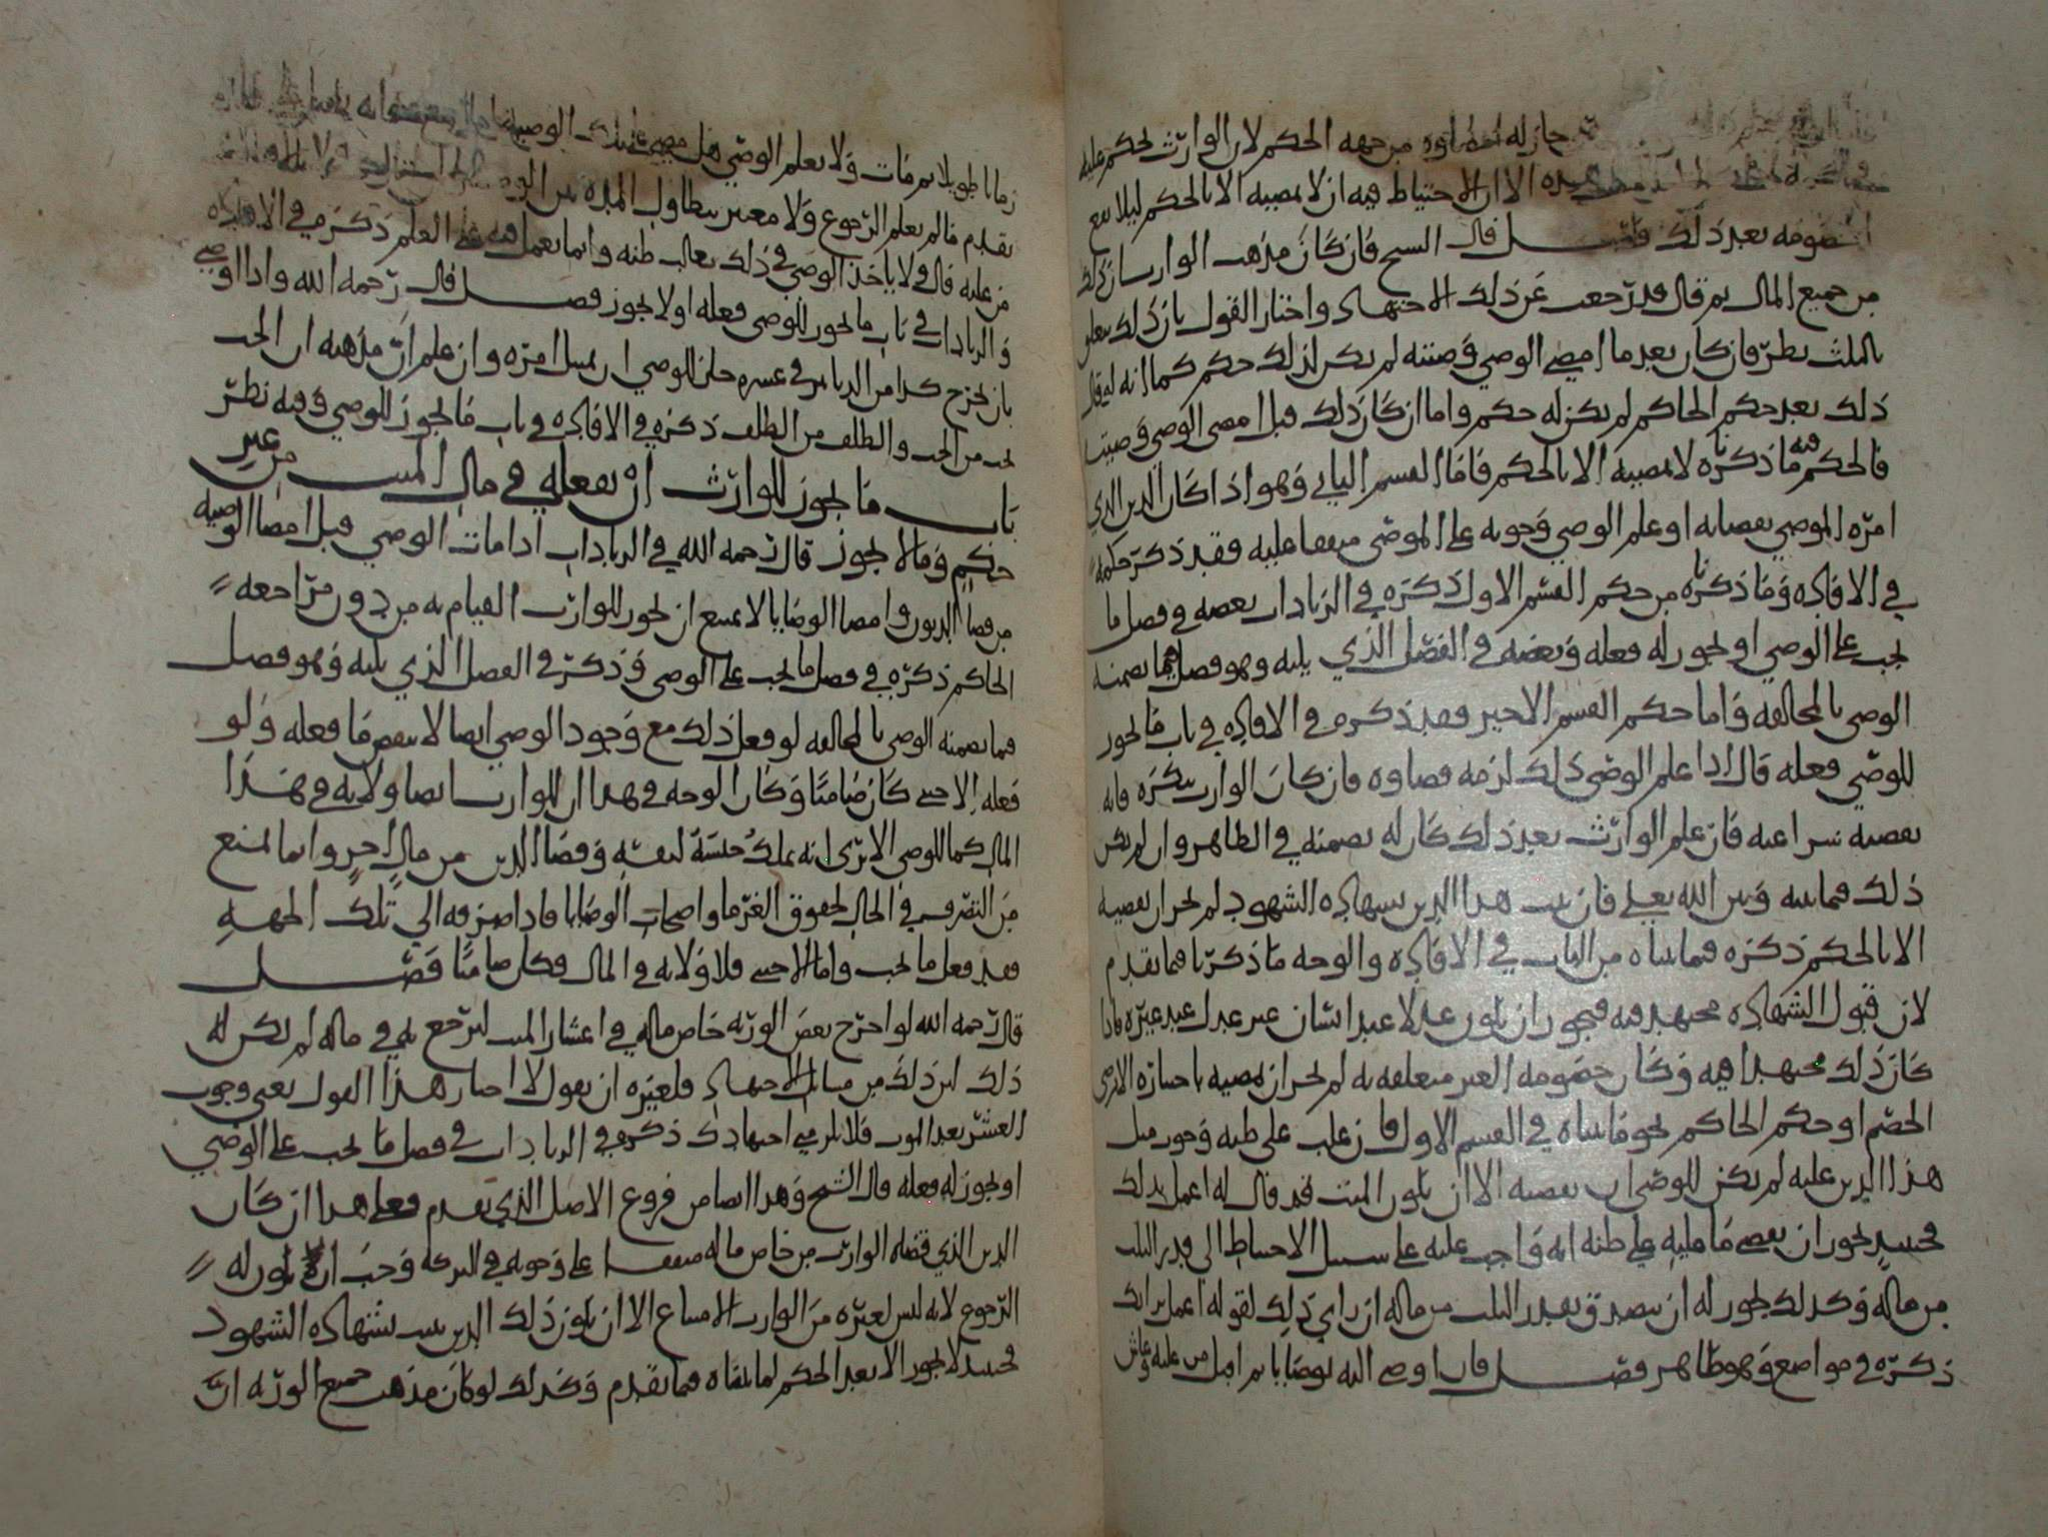 جاز له امضاوه من جهه الحكم لان الوارث يحكم عليه
الا ان الاحتياط فيه ان لا يمضيه الا بالحكم ليلا يقع
خصومه بعد ذلك فصل قال الشيخ فان كان مذهب الوارث ان ذلك
من جميع المال ثم قال قد رجعت عن ذلك الاجتهاد واختار القول بان ذلك يتعلق
بالثلث نظر فان كان بعد ما امضى الوصي وصيته لم يكن لذلك حكم كما انه لو قال
ذلك بعد حكم الحاكم لم يكن له حكم واما ان كان ذلك قبل امضى الوصي وصيته
فالحكم فيه ما ذكرناه لا يمضيه الا بالحكم فاما القسم الثاني وهو اذا كان الدين الذي
امره الموصي بقضايه او علم الوصي وجوبه على الموصي متفقا عليه فقد ذكر حكمه
في الافاده وما ذكرناه من حكم القسم الاول ذكره في الزيادات بعضه في فصل ما
يجب على الوصي او يجوز له فعله وبعضه في الفصل الذي يليه وهو فصل فيما يضمنه
الوصي بالمخالفه واما حكم القسم الاخير فقد ذكره في الافاده في باب ما يجوز
للوصي فعله قال اذا علم الوصي ذلك لزمه قضاوه فان كان الوارث ينكره فانه
يقضيه سرا عنه فان علم الوارث بعد ذلك كان له يضمنه في الظاهر وان لم يكن
ذلك فيما بينه وبين الله تعالى فان ثبت هذا الدين بشهاده الشهود لم يجز ان يقضيه
الا بالحكم ذكره فيما بيناه من الباب في الافاده والوجه ما ذكرنا فيما تقدم
لان قبول الشهاده مجتهد فيه فيجوز ان يكون عدلا عند انسان غير عدل عند غيره فاذا
كان ذلك مجتهدا فيه وكان خصومه الغير متعلقه به لم يجز ان يمضيه باختياره الا برضى
الخصم او حكم الحاكم نحو ما بيناه في القسم الاول فان غلب على ظنه وجوب مثل
هذا الدين عليه لم يكن للوصي ان يقضيه الا ان يكون الميت قد قال له اعمل بذلك
فحينئذ يجوز ان يقضي ما عليه على ظنه انه واجب عليه على سبيل الاحتياط الى قدر الثلث
من ماله وكذلك يجوز له ان يتصدق بقدر الثلث من ماله ان راى ذلك لقوله اعمل برايك
ذكره في مواضع وهو ظاهر فصل قال اوصى اليه بوصايا ثم اقبل من علته وعاش
زمانا طويلا ثم مات ولا يعلم الوصي هل مضى على تلك الوصيه
تقدم فالم يعلم الرجوع ولا معتبر بتطاول المده بين
من علته قال ولا ياخذ الوصي في ذلك بغالب ظنه وانما يعمل فيه على العلم ذكره في الافاده
والزيادات في باب ما يجوز للوصي فعله او لا يجوز فصل قال رحمه الله واذا اوصى
بان يخرج كذا من الدنانير في عشره جاز للوصي ان يمتثل امره وان علم ان مذهبه ان الحب
يجب من الحب والطلف من الطلف ذكره في الافاده في باب ما يجوز للوصي وفيه نظر
باب ما يجوز للوارث ان يفعله في مال الميت من غير
حكم وما لا يجوز قال رحمه الله في الزيادات اذا مات الوصي قبل امضا الوصيه
من قضا الديون وامضا الوصايا لا يمتنع ان يجوز للوارث القيام به من دون مراجعه
الحاكم ذكره في فصل ما يجب على الوصي وذكر في الفصل الذي يليه وهو فصل
فيما يضمنه الوصي بالمخالفه لو فعل ذلك مع وجود الوصي ايضا لا ينقض ما فعله ولو
فعله الاجنبي كان ضامنا وكان الوجه في هذا ان للوارث ايضا ولايه في هذا
المال كما للوصي الا ترى انه يملك حبسه لنفسه وقضا الدين من مال اخر وانما يمنع
من التصرف في الحال لحقوق الغرما واصحاب الوصايا فاذا صرفه الى تلك الجهه
فقد فعل ما يجب واما الاجنبي فلا ولايه في المال فكان ضامنا فصل
قال رحمه الله لو اخرج بعض الورثه خاص ماله في اعشار الميت ليرجع به في ماله لم يكن له
ذلك لان ذلك من مسايل الاجتهاد فلغيره ان يقول لا اختار هذا القول يعني وجوب
العشر بعد الموت فلا يلزمني اجتهادك ذكره في الزيادات في فصل ما يجب على الوصي
او يجوز له فعله قال الشيخ وهذا ايضا من فروع الاصل الذي تقدم فعلى هذا ان كان
الدين الذي قضاه الوارث من خاص ماله متفقا على وجوبه في التركه وجب ان يكون له
الرجوع لانه ليس لغيره من الوارث الامتناع الا ان يكون ذلك الدين ثبت بشهاده الشهود
فحينئذ لا يجوز الا بعد الحكم لما بيناه فيما تقدم وكذلك لو كان مذهب جميع الورثه ان